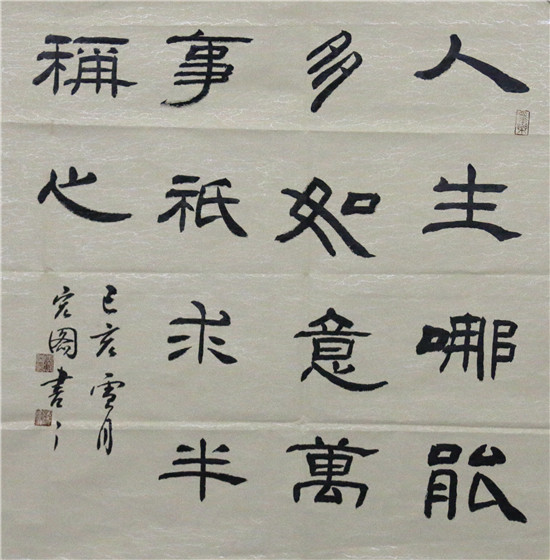 人生哪能
多如意萬
事祇求半
稱心
己亥雪月
宏图書